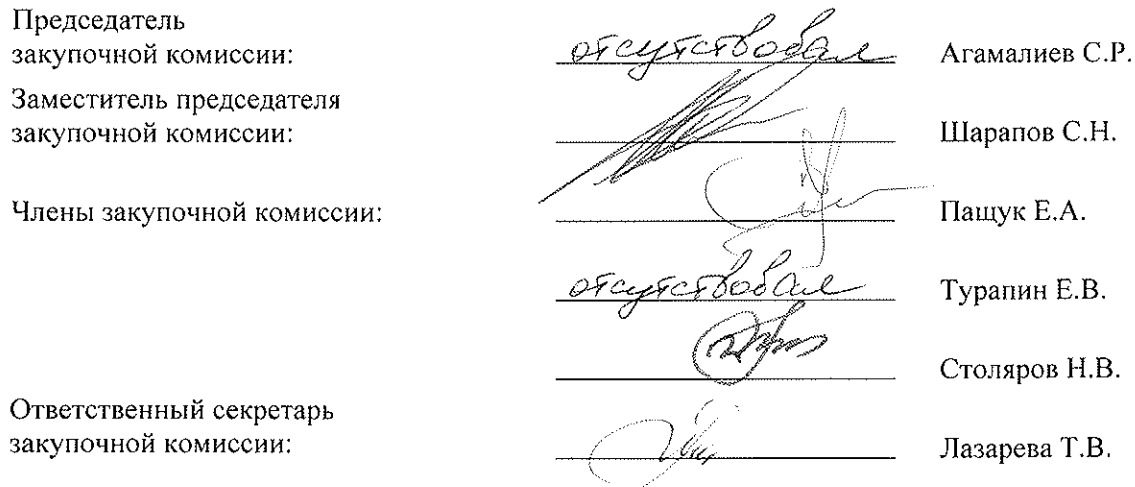 Председатель
закупочной комиссии: отсутствовал Агамалиев С.Р.
Заместитель председателя
закупочной комиссии: Шарапов С.Н.
Члены закупочной комиссии: Пащук Е.А.
отсутствовал Турапин Е.В.
Столяров Н.В.
Ответственный секретарь
закупочной комиссии: Лазарева Т.В.